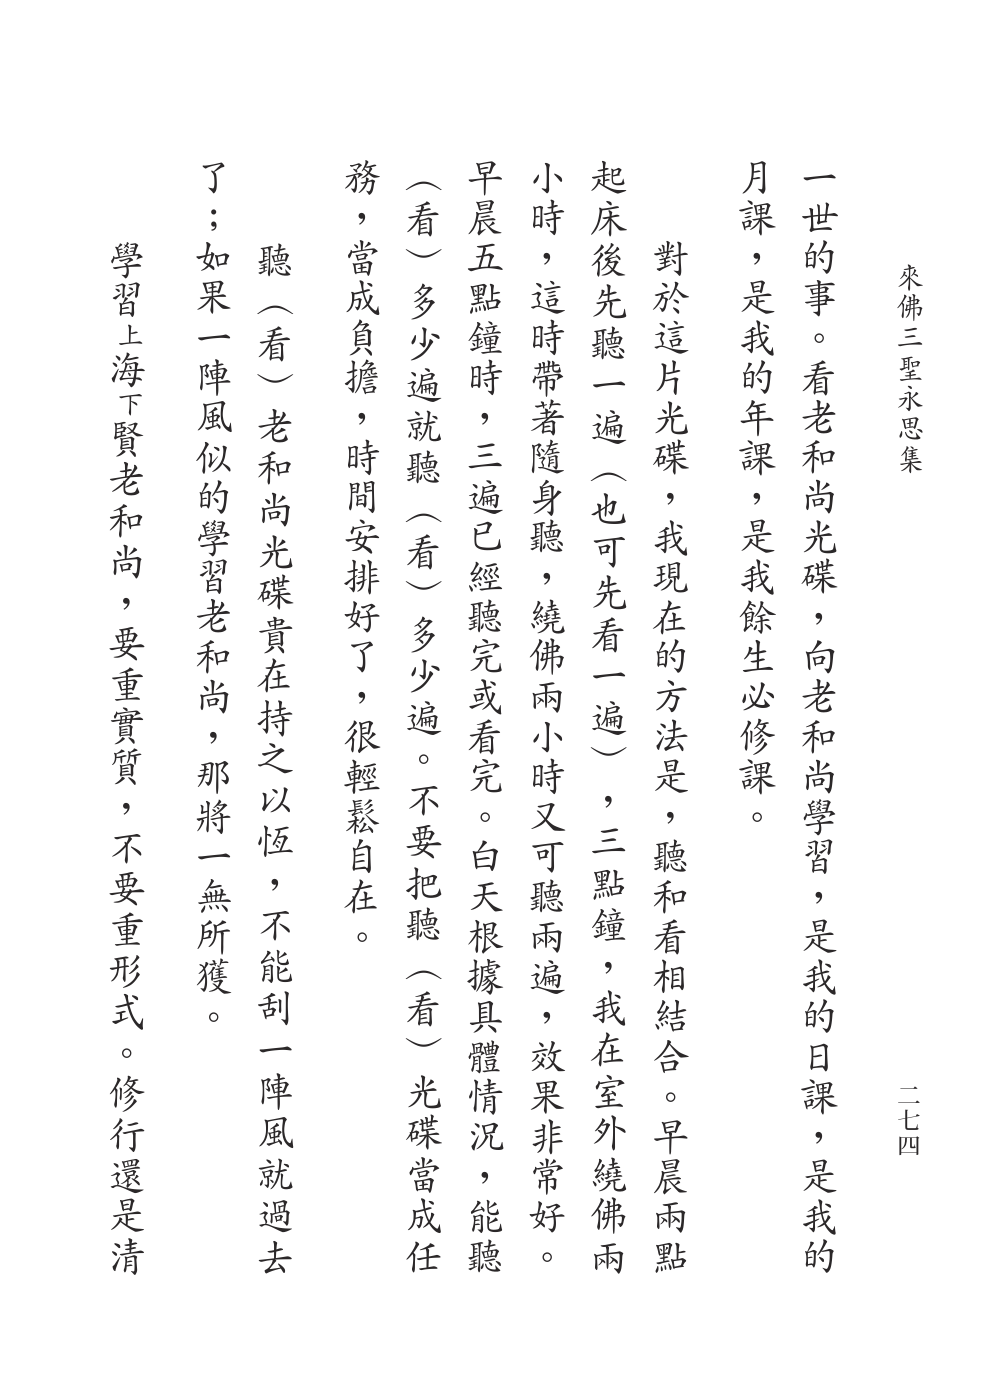 來佛三聖永思集
二七四
一世的事。看老和尚光碟，向老和尚學習，是我的日課，是我的
月課，是我的年課，是我餘生必修課。
對於這片光碟，我現在的方法是，聽和看相結合。早晨兩點
起床後先聽一遍（也可先看一遍），三點鐘，我在室外繞佛兩
小時，這時帶著隨身聽，繞佛兩小時又可聽兩遍，效果非常好。
早晨五點鐘時，三遍已經聽完或看完。白天根據具體情況，能聽
（看）多少遍就聽（看）多少遍。不要把聽（看）光碟當成任
務，當成負擔，時間安排好了，很輕鬆自在。
聽（看）老和尚光碟貴在持之以恆，不能刮一陣風就過去
了；如果一陣風似的學習老和尚，那將一無所獲。
學習上海下賢老和尚，要重實質，不要重形式。修行還是清